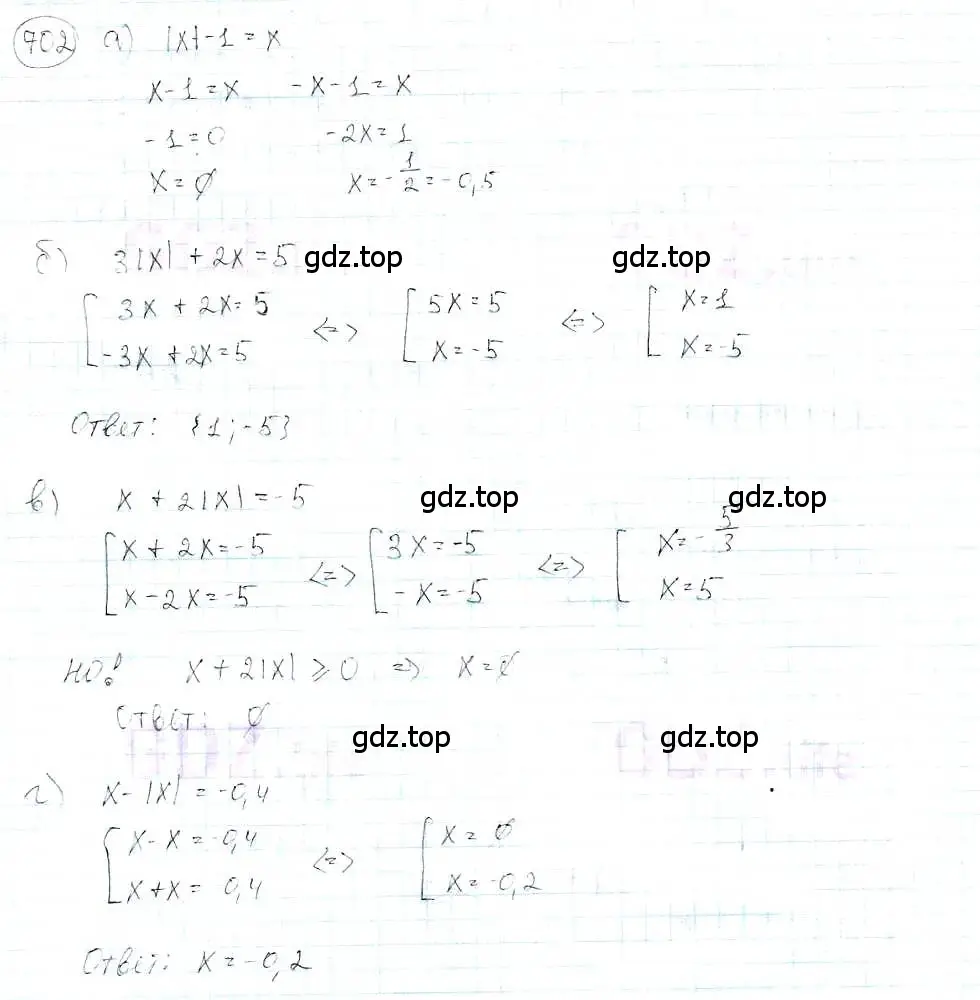 702 а) |x|-1 = x
x-1=x    -x-1=x
-1=0    -2x=1
x=∅    x=-1/2=-0,5
б) 3|x| + 2x = 5 gdz.top gdz.top
[ 3x + 2x = 5 <=> [ 5x = 5 <=> [ x=1
-3x + 2x = 5    x=-5    x=-5
Ответ: {1;-5}
в) x + 2|x| = -5 gdz.top gdz.top
[ x + 2x = -5 <=> [ 3x = -5 <=> [ x = -5/3
x - 2x = -5    -x = -5    x=5
НО! x + 2|x| ⩾ 0 => x=∅
Ответ: ∅
gdz.top gdz.top
г) x-|x| = -0,4
[ x-x = -0,4 <=> [ x = ∅
x+x = 0,4    x=-0,2
Ответ: x = -0,2